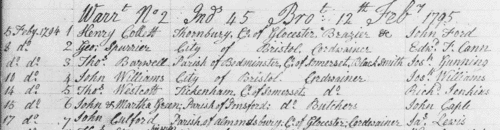 Warrt. No 2 Ind 45 Brot. 12th Feby 1795
5 Feby. 1794 1 Henry Collett Thornbury, C. of Glocester Brazier &c John Ford
8 do 2 Geo. Spurrier City of Bristol Cordwainer Edwd. J. Cann
do do 3 Thos. Barwell Parish of Bedminster, C. of Somerset, Black Smith Jos. Gunning
10 do 4 John Williams City of Bristol Cordwainer Jos. Williams
14 do 5 Thos. Westcott Tickenham, C. of Somerset do Richd. Jenkins
15 do 6 John & Martha Green, Parish of do Butchers John Caple
17 do 7 John Parish of Almondsbury, C. of Glocester, Cordwainer Jas. Lewis